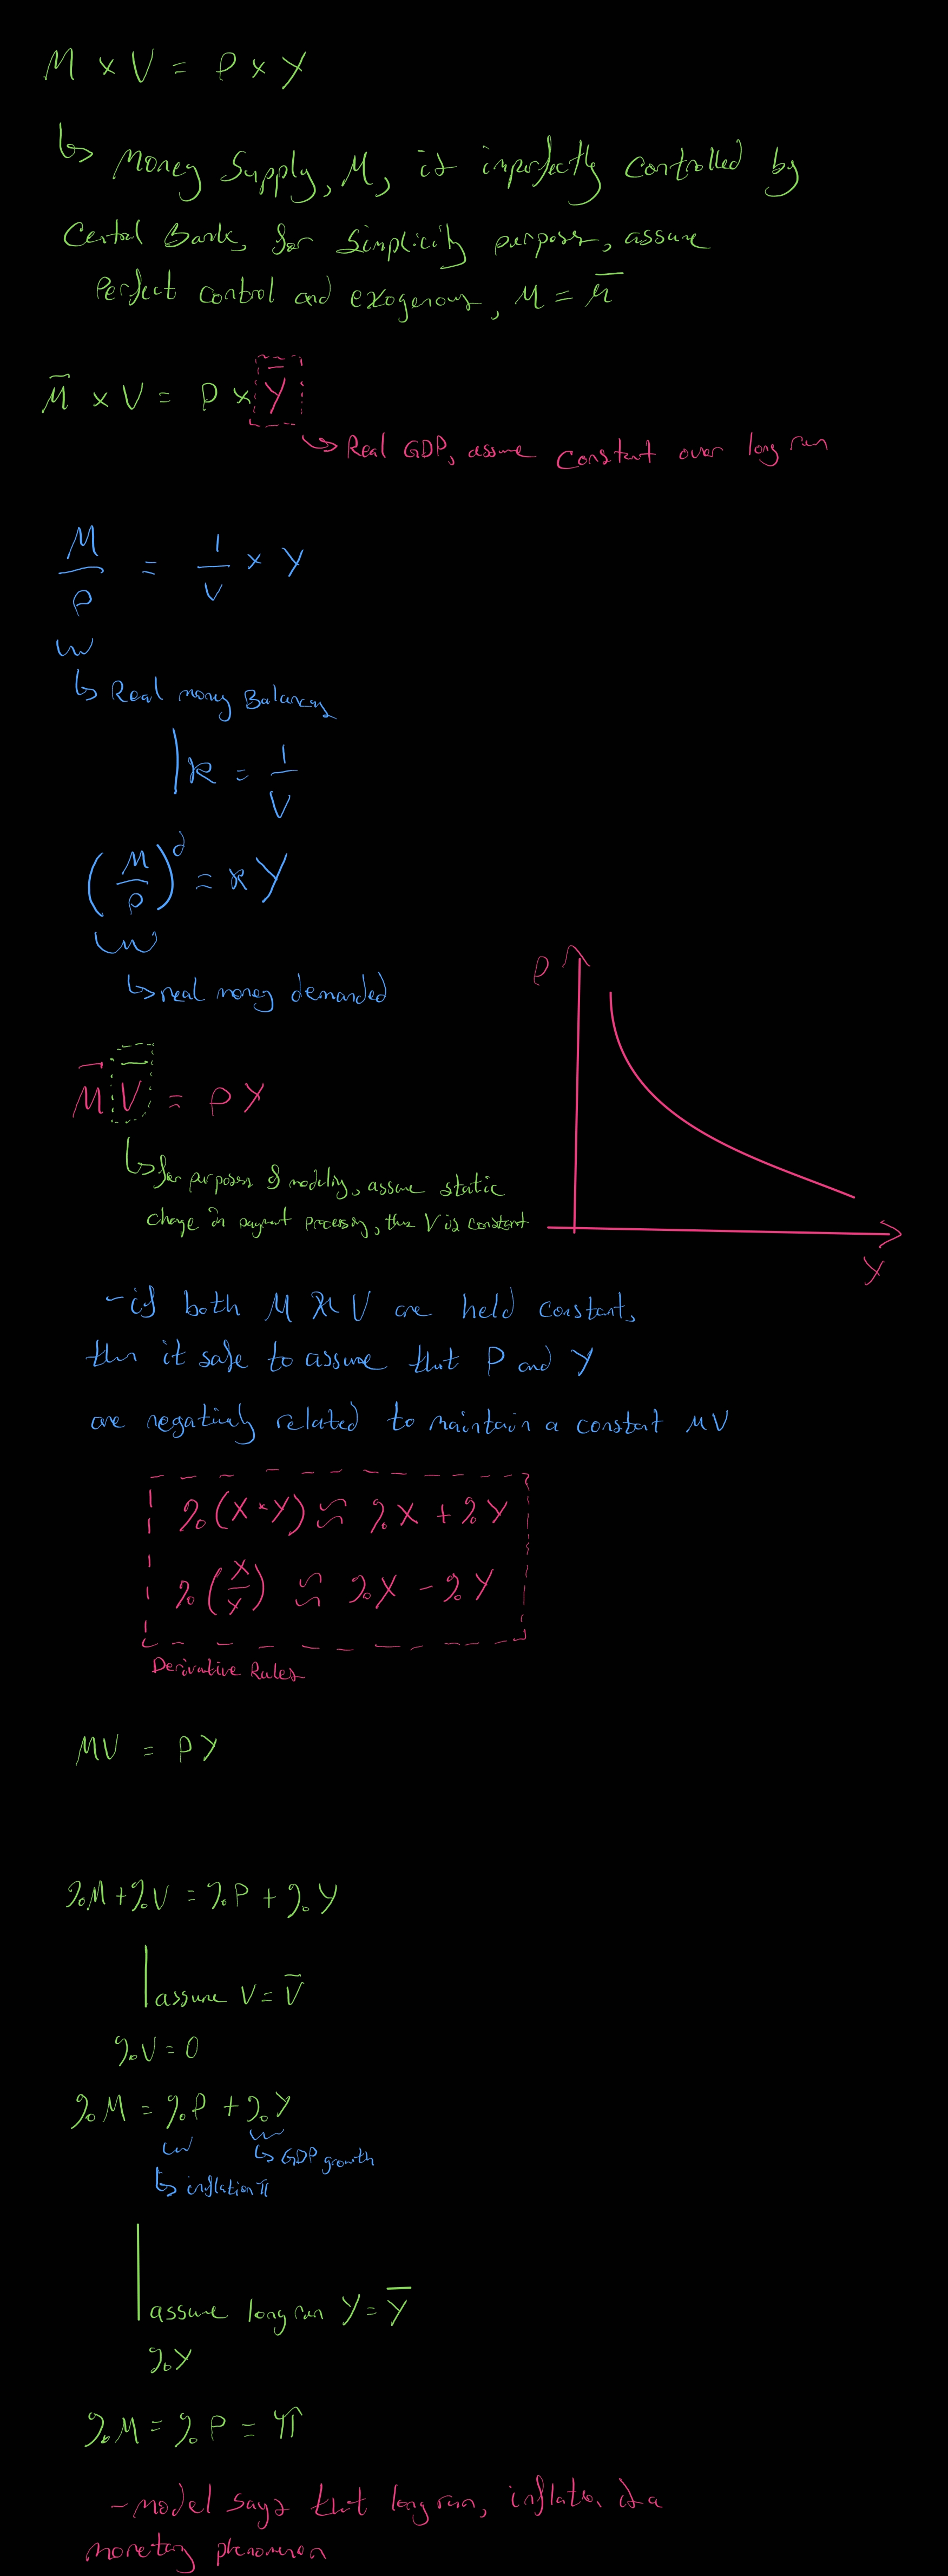 M × V = P × Y
↳ Money Supply, M, is imperfectly controlled by
Central Bank, for simplicity purposes, assume
Perfect control and exogenous, M = M̄
M̄ × V = P × Ȳ
↳ Real GDP, assume constant over long run
M/P = 1/V × Y
↳ Real money Balances
k = 1/V
(M/P)^d = kY
↳ real money demanded
P
M̄ V̄ = PY
↳ for purposes of modeling, assume static
change in payment processing, thus V is constant
Y
- if both M & V are held constant,
then it safe to assume that P and Y
are negatively related to maintain a constant MV
%(X*Y) ≈ %X + %Y
%(X/Y) ≈ %X - %Y
Derivative Rules
MV = PY
%M + %V = %P + %Y
assume V = V̄
%V = 0
%M = %P + %Y
↳ GDP growth
↳ inflation π
assume long run Y = Ȳ
%Y
%M = %P = π
- model says that long run, inflation is a
monetary phenomenon